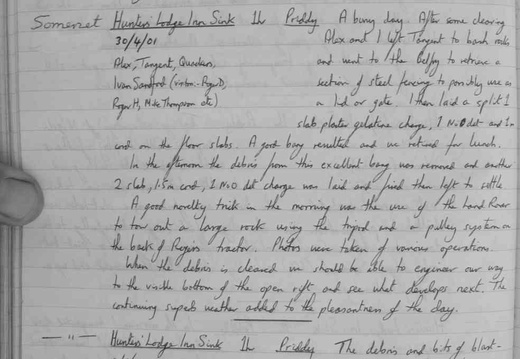 Somerset Hunters' Lodge Inn Sink 1h Priddy A busy day. After some clearing
30/4/01 Alex and I left Tangent to bank rocks
Alex, Tangent, Quackers, and went to the Belfry to retrieve a
Ivan Sandford (visitors - Roger D, section of steel fencing to possibly use as
Roger H, Mike Thompson etc) a lid or gate. I then laid a split 1
slab plaster gelatine charge, 1 No 0 det and 1m
cord on the floor slabs. A good bang resulted and we retired for lunch.
In the afternoon the debris from this excellent bang was removed and another
2 slab, 1.5m cord, 1 No 0 det charge was laid and fired then left to settle.
A good novelty trick in the morning was the use of the Land Rover
to tow out a large rock using the tripod and a pulley system on
the back of Roger's tractor. Photos were taken of various operations.
When the debris is cleared we should be able to engineer our way
to the visible bottom of the open rift and see what develops next. The
continuing superb weather added to the pleasantness of the day.
— " — Hunters' Lodge Inn Sink 1h Priddy The debris and bits of blast-